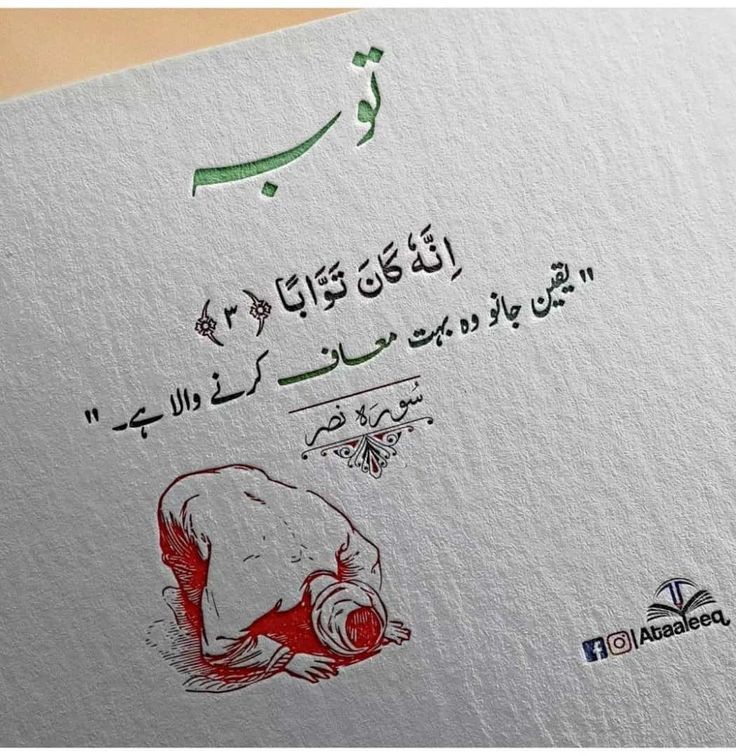 توبہ
اِنَّهٗ كَانَ تَوَّابًا ﴿٣﴾
"یقین جانو وہ بہت معاف کرنے والا ہے۔"
سُورَہ نصر
Ataaleeq